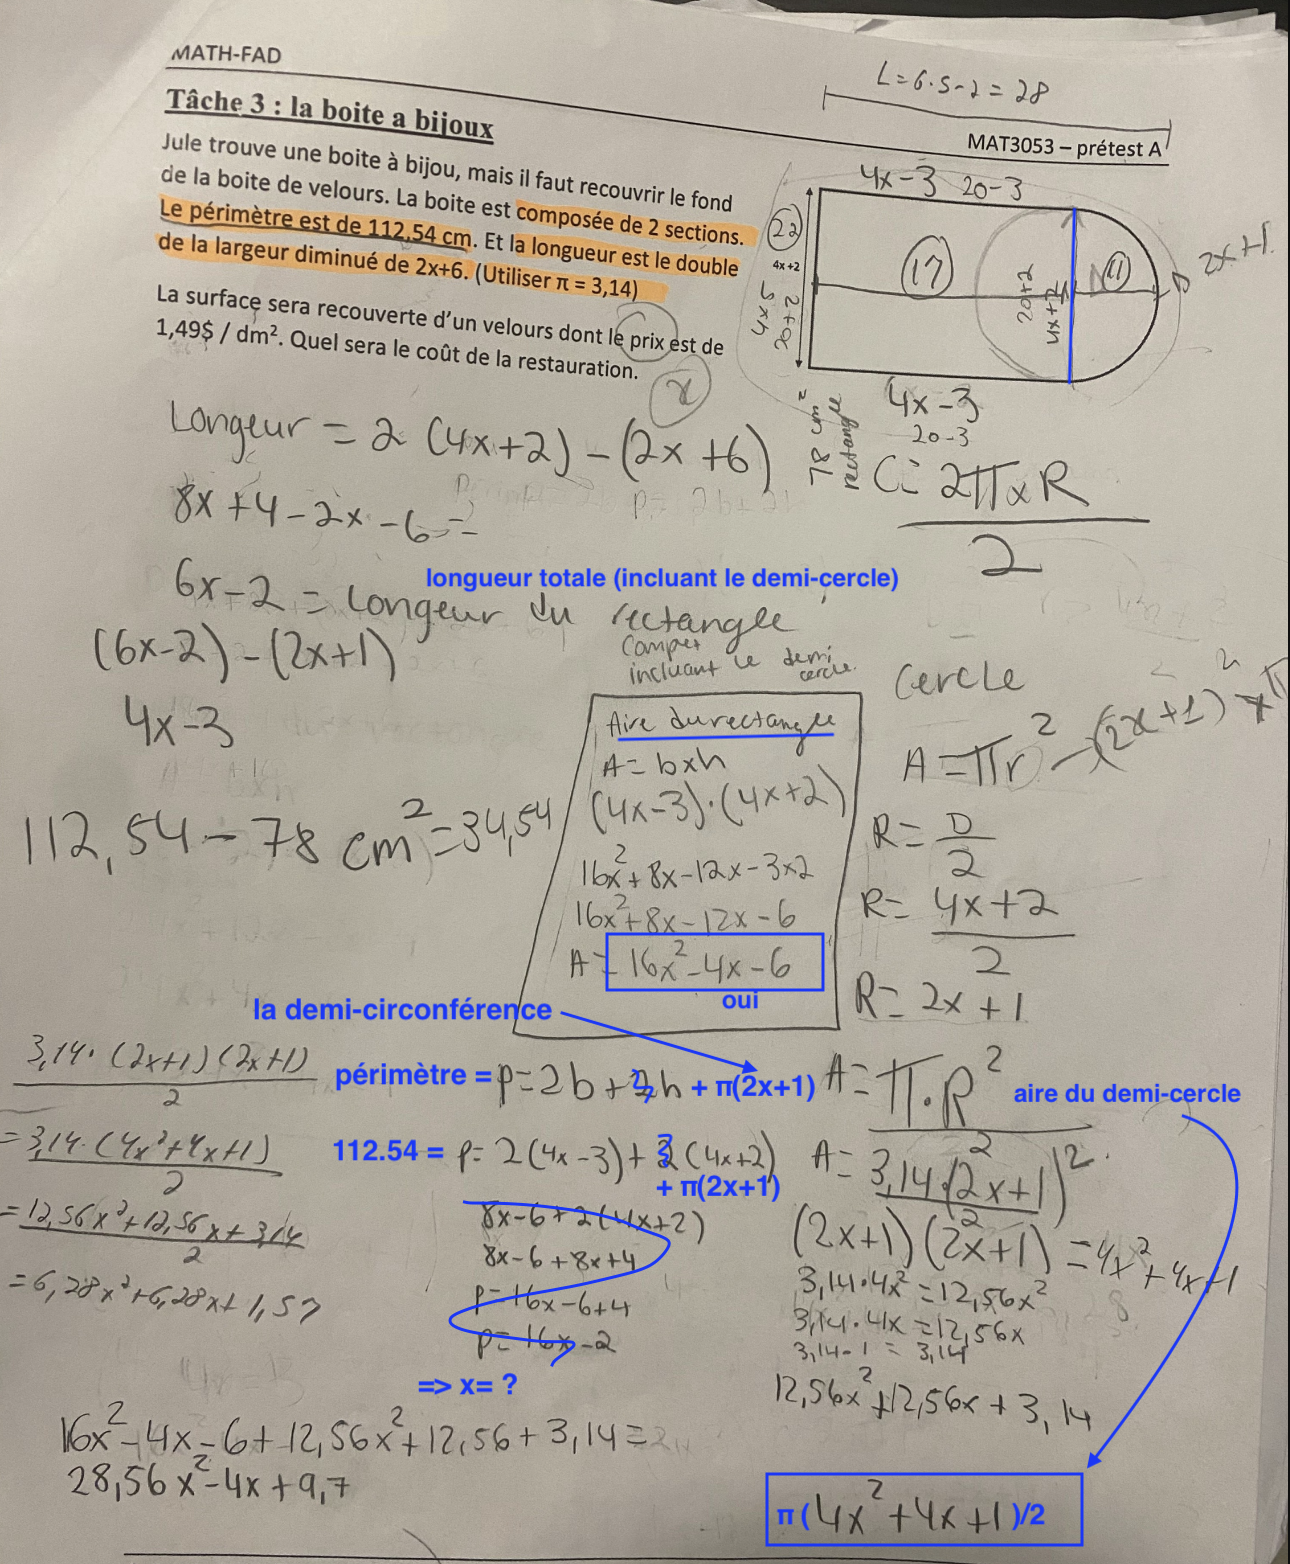 MATH-FAD
L = 6·5-2 = 28
Tâche 3 : la boite a bijoux
MAT3053 – prétest A
Jule trouve une boite à bijou, mais il faut recouvrir le fond
de la boite de velours. La boite est composée de 2 sections.
Le périmètre est de 112,54 cm. Et la longueur est le double
de la largeur diminué de 2x+6. (Utiliser π = 3,14)
La surface sera recouverte d'un velours dont le prix est de
1,49$ / dm². Quel sera le coût de la restauration.
4x-3 20-3
22
4x+2
4x5
20+2
17
20+2
4x+2
11
2x+1
4x-3
20-3
78 cm²
rectangle
x
Longeur = 2 (4x+2) - (2x+6)
8x+4-2x-6 =
C = 2π x R
2
longueur totale (incluant le demi-cercle)
6x-2 = Longeur du rectangle
incluant le demi
cercle.
(6x-2) - (2x+1)
4x-3
Cercle
A = πr² - (2x+1)² x π
Aire du rectangle
A = b x h
(4x-3)·(4x+2)
16x²+8x-12x-3x2
16x²+8x-12x-6
A = 16x²-4x-6
oui
112,54 - 78 cm² = 34,54
R = D
2
R = 4x+2
2
R = 2x+1
la demi-circonférence
3,14·(2x+1)(2x+1)
2
= 3,14·(4x²+4x+1)
2
= 12,56x²+12,56x+3,14
2
= 6,28x²+6,28x+1,57
périmètre = p=2b+2h + π(2x+1)
112.54 = p= 2(4x-3)+2(4x+2)
+ π(2x+1)
8x-6+2(4x+2)
8x-6+8x+4
p=16x-6+4
p=16x-2
=> x= ?
A = π·R²
2
aire du demi-cercle
A = 3,14·(2x+1)²
2
(2x+1)(2x+1) = 4x²+4x+1
3,14·4x² = 12,56x²
3,14·4x = 12,56x
3,14·1 = 3,14
12,56x²+12,56x+3,14
16x²-4x-6+12,56x²+12,56+3,14=
28,56x²-4x+9,7
π (4x²+4x+1)/2